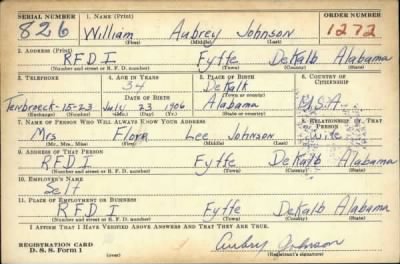 SERIAL NUMBER 1. NAME (Print) ORDER NUMBER
826 William Aubrey Johnson 1272
(First) (Middle) (Last)
2. ADDRESS (Print)
R.F.D. I Fyffe DeKalb Alabama
(Number and street or R. F. D. number) (Town) (County) (State)
3. TELEPHONE 4. AGE IN YEARS 5. PLACE OF BIRTH 6. COUNTRY OF CITIZENSHIP
34 DeKalb
DATE OF BIRTH (Town or county)
Tenbroeck-15-23 July 23 1906 Alabama U.S.A.
(Exchange) (Number) (Mo.) (Day) (Yr.) (State or country)
7. NAME OF PERSON WHO WILL ALWAYS KNOW YOUR ADDRESS 8. RELATIONSHIP OF THAT PERSON
Mrs Flora Lee Johnson Wife
(Mr., Mrs., Miss) (First) (Middle) (Last)
9. ADDRESS OF THAT PERSON
R.F.D. I Fyffe DeKalb Alabama
(Number and street or R. F. D. number) (Town) (County) (State)
10. EMPLOYER'S NAME
Self
11. PLACE OF EMPLOYMENT OR BUSINESS
R.F.D. I Fyffe DeKalb Alabama
(Number and street or R. F. D. number) (Town) (County) (State)
I AFFIRM THAT I HAVE VERIFIED ABOVE ANSWERS AND THAT THEY ARE TRUE.
REGISTRATION CARD
D. S. S. Form 1 (over) Aubry Johnson
(Registrant's signature)